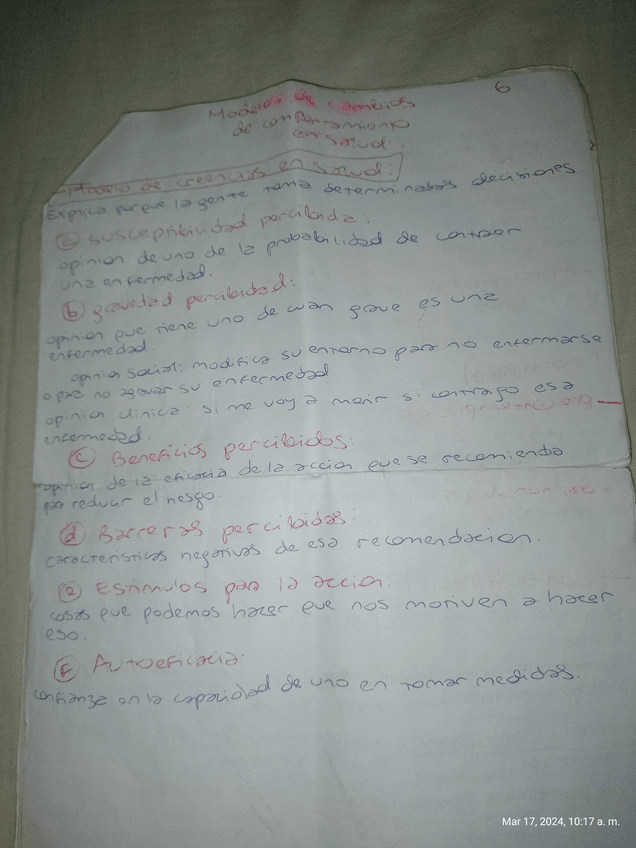 6
Modelos de cambios
de comportamiento
en salud.
Modelo de creencias en salud:
Explica porque la gente toma determinadas decisiones
a susceptibilidad percibida:
opinion de uno de la probabilidad de contraer
una enfermedad.
b gravedad percibida:
opinion que tiene uno de cuan grave es una
enfermedad.
opinion social: modifica su entorno para no enfermarse
o para no agravar su enfermedad
opinion clinica: si me voy a morir si contraigo esa
enfermedad.
c Beneficios percibidos:
opinion de la eficacia de la accion que se recomienda
para reducir el riesgo.
d Barreras percibidas:
caracteristicas negativas de esa recomendacion.
e Estimulos para la accion.
cosas que podemos hacer que nos motiven a hacer
eso.
f Autoeficacia:
confianza en la capacidad de uno en tomar medidas.
Mar 17, 2024, 10:17 a. m.